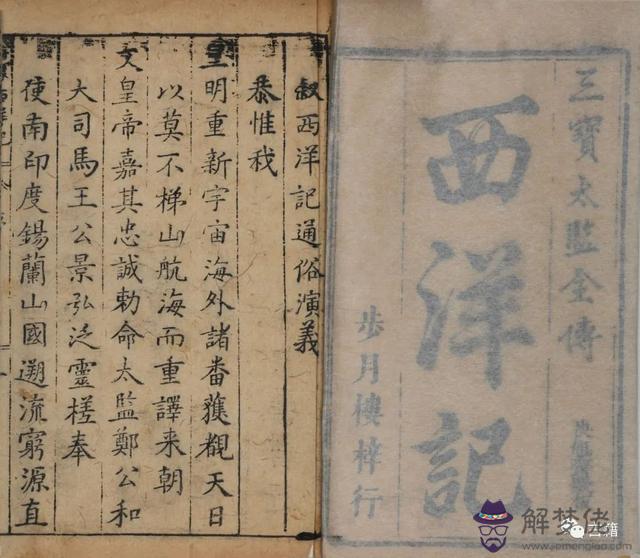 三寶太監全傳
西洋記
步月樓梓行
叙西洋記通俗演義
恭惟我
皇明重新宇宙海外諸番獲覩天日
以莫不梯山航海而重譯来朝
文皇帝嘉其忠誠勅命太監鄭公和
大司馬王公景弘泛靈槎奉
使南印度錫蘭山國遡流窮源直
解梦佬
www.jiemenglao.com
古籍